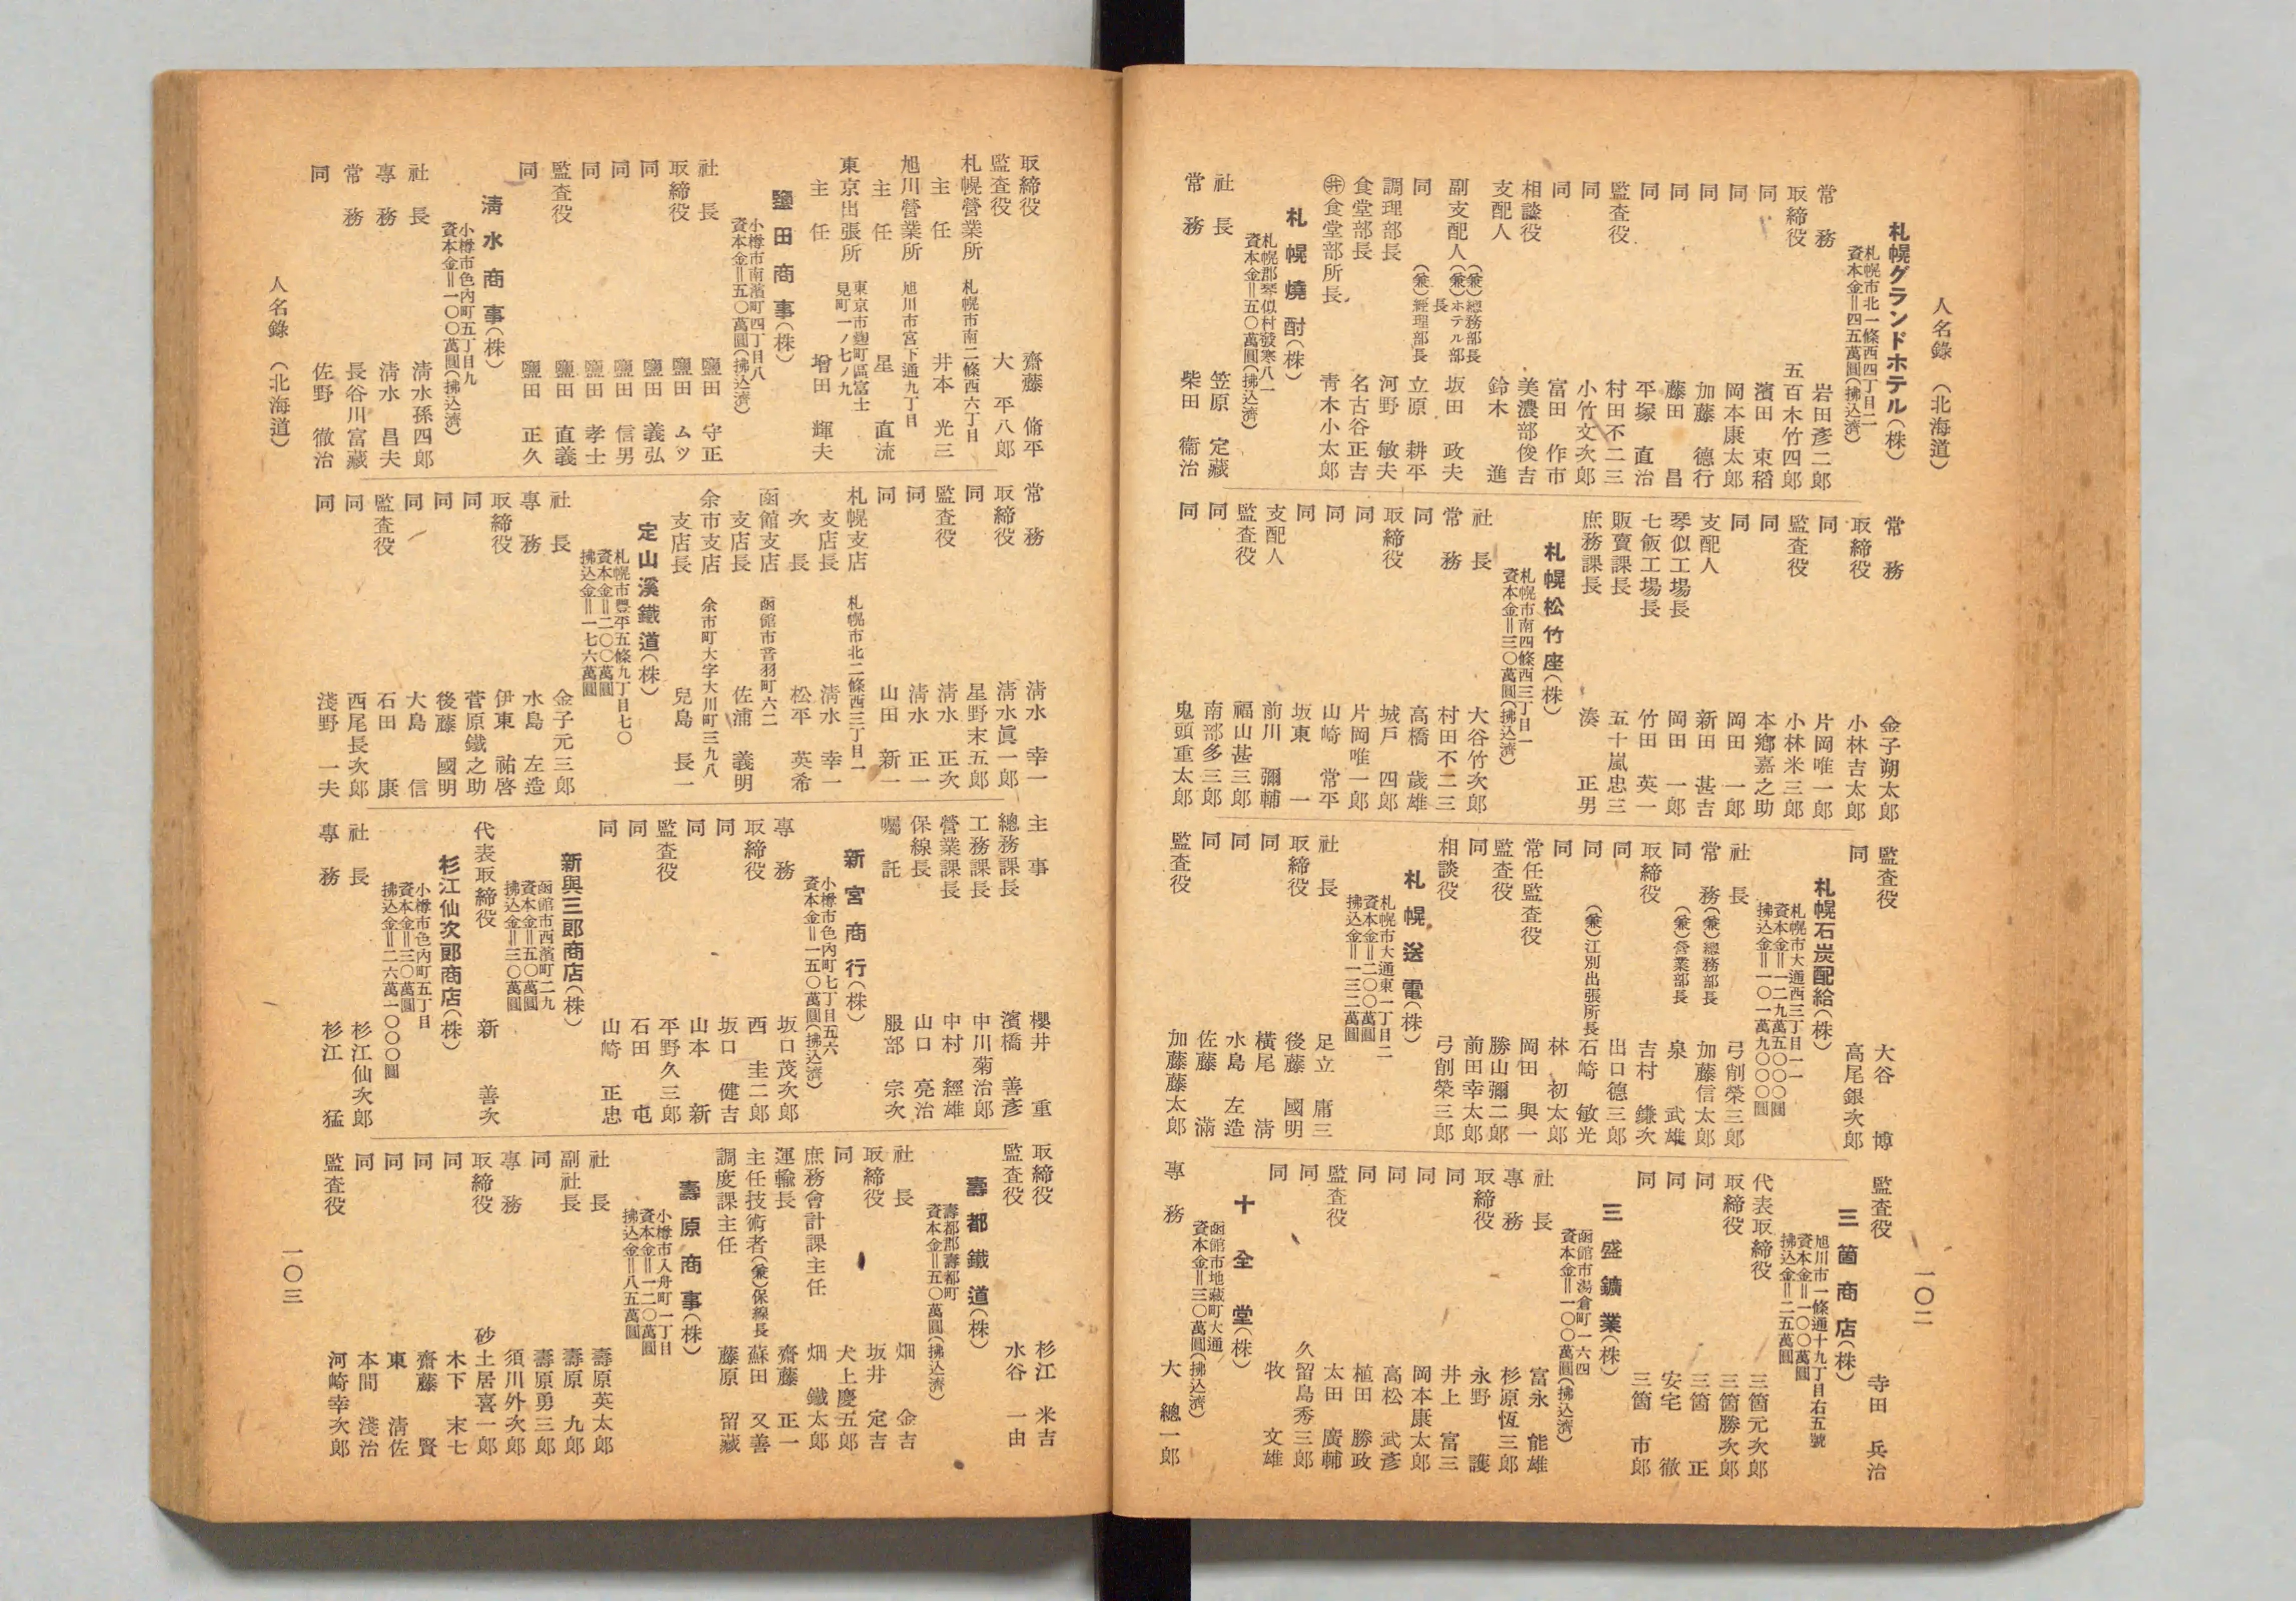 人名錄 (北海道)
札幌グランドホテル(株)
札幌市北一條西四丁目二
資本金=四五萬圓(拂込濟)
常務 岩田彥二郎
取締役 五百木竹四郎
同 濱田東稻
同 岡本康太郎
同 加藤德行
同 藤田昌
同 平塚直治
監査役 村田不二三
同 小竹文次郎
同 富田作市
相談役 美濃部俊吉
支配人 鈴木進
副支配人 (兼)總務部長 (兼)ホテル部長 坂田政夫
同 (兼)經理部長 立原耕平
調理部長 河野敏夫
食堂部長 名古谷正吉
井食堂部所長 靑木小太郎
札幌燒酎(株)
札幌郡琴似村發寒八一
資本金=五〇萬圓(拂込濟)
社長 笠原定藏
常務 柴田衞治
常務 金子朔太郎
取締役 小林吉太郎
同 片岡唯一郎
監査役 小林米三郎
同 本鄕嘉之助
同 岡田一郎
支配人 新田甚吉
琴似工場長 岡田一郎
七飯工場長 竹田英一
販賣課長 五十嵐忠三
庶務課長 湊正男
札幌松竹座(株)
札幌市南四條西三丁目一
資本金=三〇萬圓(拂込濟)
社長 大谷竹次郎
常務 村田不二三
同 高橋歲雄
取締役 城戶四郎
同 片岡唯一郎
同 山崎常平
同 坂東一
支配人 前川彌輔
監査役 福山甚三郎
同 南部多三郎
同 鬼頭重太郎
監査役 大谷博
同 高尾銀次郎
札幌石炭配給(株)
札幌市大通西三丁目一一
資本金=一二九萬五〇〇〇圓
拂込金=一〇一萬九〇〇〇圓
社長 弓削榮三郎
常務(兼)總務部長 加藤信太郎
同 (兼)營業部長 泉武雄
取締役 吉村鎌次
同 出口德三郎
同 (兼)江別出張所長 石崎敏光
同 林初太郎
常任監査役 岡田與一
監査役 勝山彌二郎
同 前田幸太郎
相談役 弓削榮三郎
札幌送電(株)
札幌市大通東一丁目二
資本金=二〇〇萬圓
拂込金=一三二萬圓
社長 足立庸三
取締役 後藤國明
同 橫尾淸
同 水島左造
同 佐藤滿
監査役 加藤藤太郎
監査役 寺田兵治
三箇商店(株)
旭川市一條通十九丁目右五號
資本金=一〇〇萬圓
拂込金=二五萬圓
代表取締役 三箇元次郎
取締役 三箇勝次郎
同 三箇正
同 安宅徹
同 三箇市郎
三盛鑛業(株)
函館市湯倉町一六四
資本金=一〇〇萬圓(拂込濟)
社長 富永能雄
專務 杉原恆三郎
取締役 永野護
同 井上富三
同 岡本康太郎
同 高松武彥
同 植田勝政
監査役 太田廣輔
同 久留島秀三郎
同 牧文雄
十全堂(株)
函館市地藏町大通
資本金=三〇萬圓(拂込濟)
專務 大總一郎
一〇二
取締役 齋藤脩平
監査役 大平八郎
札幌營業所 札幌市南二條西六丁目
主任 井本光三
旭川營業所 旭川市宮下通九丁目
主任 星直流
東京出張所 東京市麴町區富士見町一ノ七ノ九
主任 增田輝夫
鹽田商事(株)
小樽市南濱町四丁目八
資本金=五〇萬圓(拂込濟)
社長 鹽田守正
取締役 鹽田ムツ
同 鹽田義弘
同 鹽田信男
同 鹽田孝士
監査役 鹽田直義
同 鹽田正久
淸水商事(株)
小樽市色內町五丁目九
資本金=一〇〇萬圓(拂込濟)
社長 淸水孫四郎
專務 淸水昌夫
常務 長谷川富藏
同 佐野徹治
常務 淸水幸一
取締役 淸水眞一郎
同 星野末五郎
監査役 淸水正次
同 淸水正一
同 山田新一
札幌支店 札幌市北二條西三丁目一
支店長 淸水幸一
次長 松平英希
函館支店 函館市音羽町六二
支店長 佐浦義明
余市支店 余市町大字大川町三九八
支店長 兒島長一
定山溪鐵道(株)
札幌市豐平五條九丁目七〇
資本金=二〇〇萬圓
拂込金=一七六萬圓
社長 金子元三郎
專務 水島左造
取締役 伊東祐啓
同 菅原鐵之助
同 後藤國明
同 大島信
監査役 石田康
同 西尾長次郎
同 淺野一夫
主事 櫻井重
總務課長 濱橋善彥
工務課長 中川菊治郎
營業課長 中村經雄
保線長 山口亮治
囑託 服部宗次
新宮商行(株)
小樽市色內町七丁目五六
資本金=一五〇萬圓(拂込濟)
專務 坂口茂次郎
取締役 西圭二郎
同 坂口健吉
同 山本新
監査役 平野久三郎
同 石田屯
同 山崎正忠
新興三郎商店(株)
函館市西濱町二九
資本金=五〇萬圓
拂込金=三〇萬圓
代表取締役 新善次
杉江仙次郎商店(株)
小樽市色內町五丁目
資本金=三〇萬圓
拂込金=二六萬一〇〇〇圓
社長 杉江仙次郎
專務 杉江猛
取締役 杉江米吉
監査役 水谷一由
壽都鐵道(株)
壽都郡壽都町
資本金=五〇萬圓(拂込濟)
社長 畑金吉
取締役 坂井定吉
同 犬上慶五郎
庶務會計課主任 畑鐵太郎
運輸長 齋藤正一
主任技術者(兼)保線長 蘇田又善
調度課主任 藤原留藏
壽原商事(株)
小樽市入舟町一丁目
資本金=一二〇萬圓
拂込金=八五萬圓
社長 壽原英太郎
副社長 壽原九郎
同 壽原勇三郎
專務 須川外次郎
取締役 砂土居喜一郎
同 木下末七
同 齋藤賢
同 東淸佐
同 本間淺治
監査役 河崎幸次郎
人名錄 (北海道)
一〇三